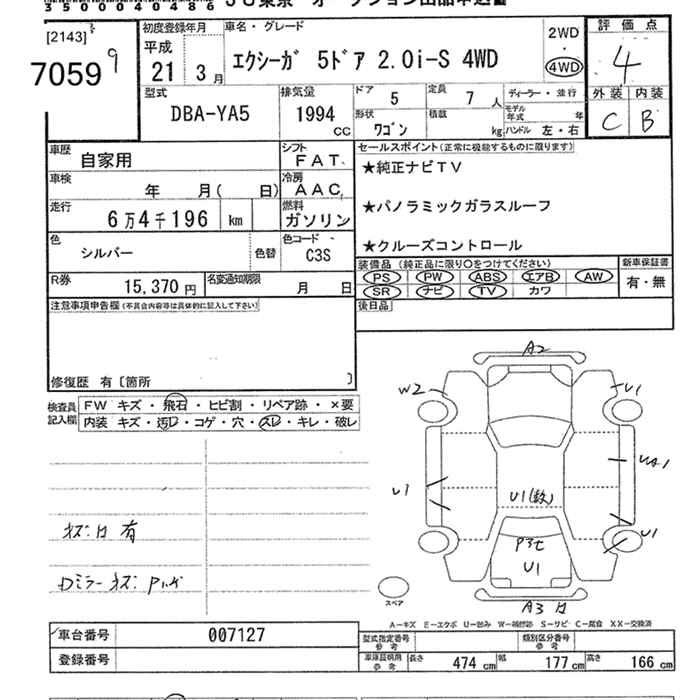 35000040486
[2143]
70599
初度登録年月
平成
21 3月
車名・グレード
エクシーガ 5ドア 2.0i-S 4WD
2WD
・
4WD
評価点
4
外装 内装
C B
型式
DBA-YA5
排気量
1994
cc
ドア 5
定員 7 人
形状 ワゴン
積載 kg
ディーラー・並行
モデル年式 年
ハンドル 左・右
車歴 自家用
シフト FAT
車検 年 月( 日)
冷房 AAC
走行 6万4千196 km
燃料 ガソリン
色 シルバー 色替
色コード C3S
R券 15,370円
名変通知期限 月 日
セールスポイント(正常に機能するものに限ります)
★純正ナビTV
★パノラミックガラスルーフ
★クルーズコントロール
装備品(純正品に限り○をつけてください)
PS PW ABS エアB AW
SR ナビ TV カワ
新車保証書
有・無
後日品
注意事項申告欄(不具合内容等は具体的に記入して下さい)
修復歴 有〔箇所 〕
検査員記入欄
FW キズ・飛石・ヒビ割・リペア跡・×要
内装 キズ・汚レ・コゲ・穴・スレ・キレ・破レ
キズ凹有
Dミラーキズ
A2
W2
U1
UA1
U1
U1(数)
U1
U1
A3
スペア
A-キズ E-エクボ U-凹み W-補修跡 S-サビ C-腐食 XX-交換済
車台番号 007127
登録番号
型式指定番号
参考
類別区分番号
参考
車庫証明用
参考
長さ 474cm 幅 177cm 高さ 166cm